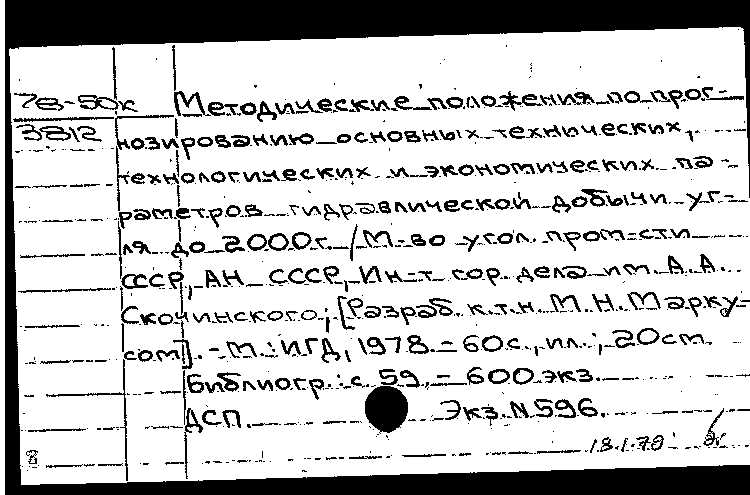 78-50к Методические положения по прог-
3812 нозированию основных технических,
технологических и экономических па-
раметров гидравлической добычи уг-
ля до 2000г. /М-во угол. пром-сти
СССР, АН СССР, Ин-т гор. дела им. А.А.
Скочинского; [Разраб. к.т.н. М.Н. Марку-
сом]. - М.: ИГД, 1978. - 60с., ил.; 20см.
Библиогр.: с 59. - 600 экз.
ДСП. Экз. N 596.
18.1.79
8